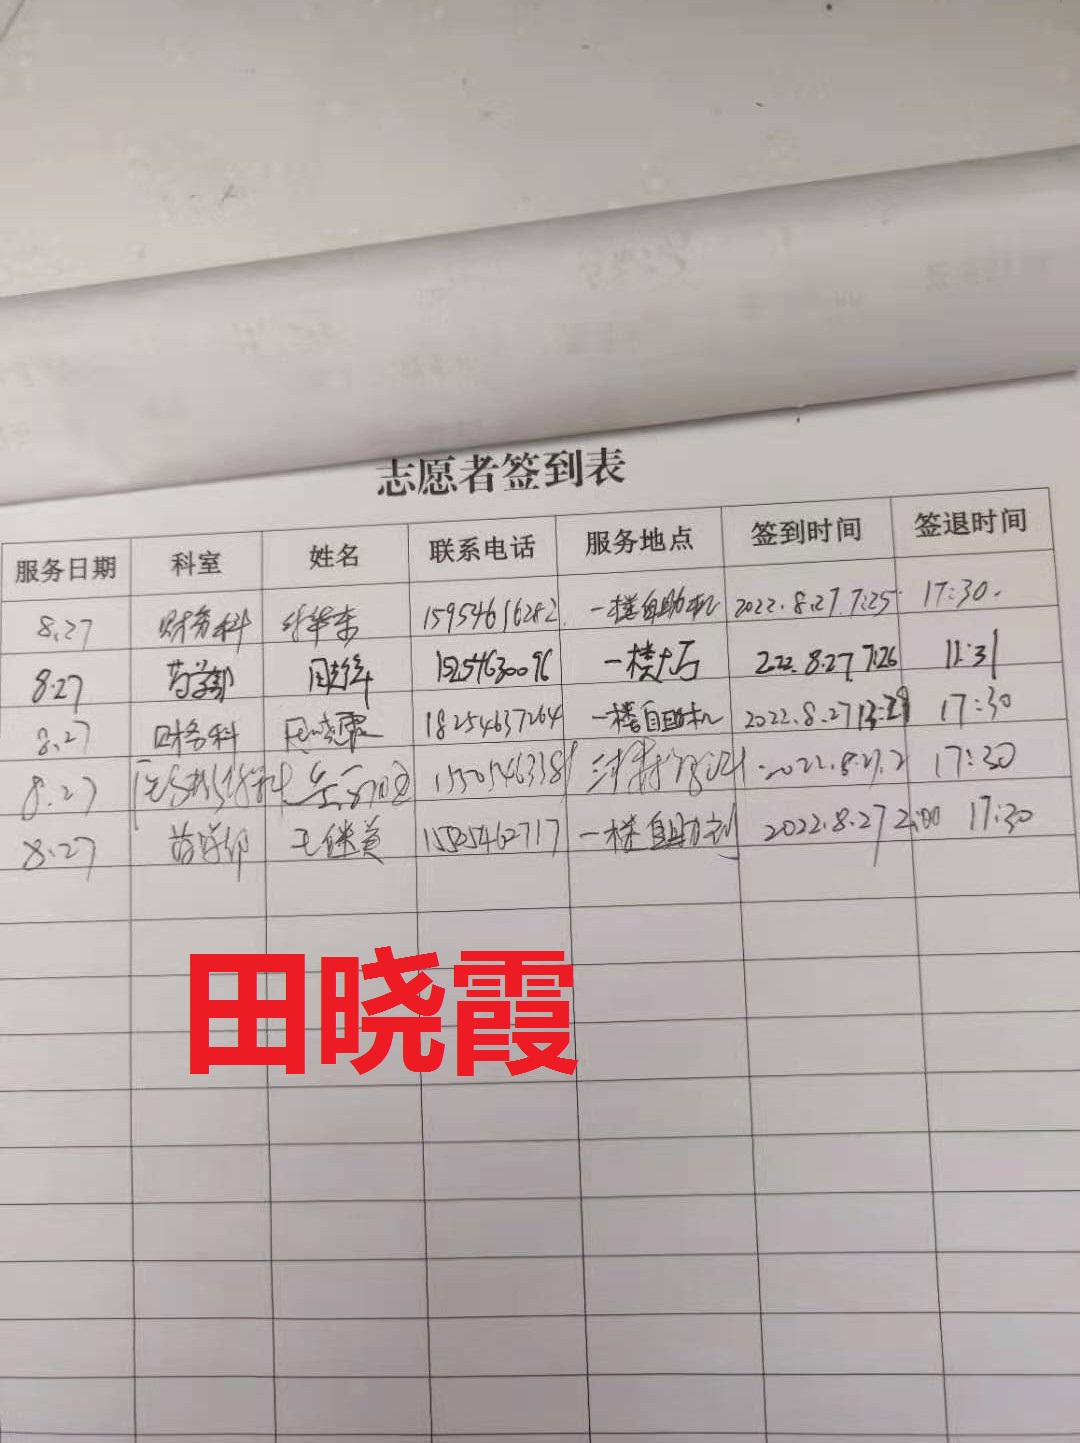 志愿者签到表
服务日期 科室 姓名 联系电话 服务地点 签到时间 签退时间
8.27 财务科 15954616282 一楼自助机 2022.8.27 7:25 17:30.
8.27 药学部 15254630096 一楼大厅 2022.8.27 7:26 11:31
8.27 财务科 18254637264 一楼自助机 2022.8.27 13:29 17:30
8.27 2022.8.27.2 17:30
8.27 药学部 王继美 一楼自助机 2022.8.27 2:00 17:30
田晓霞